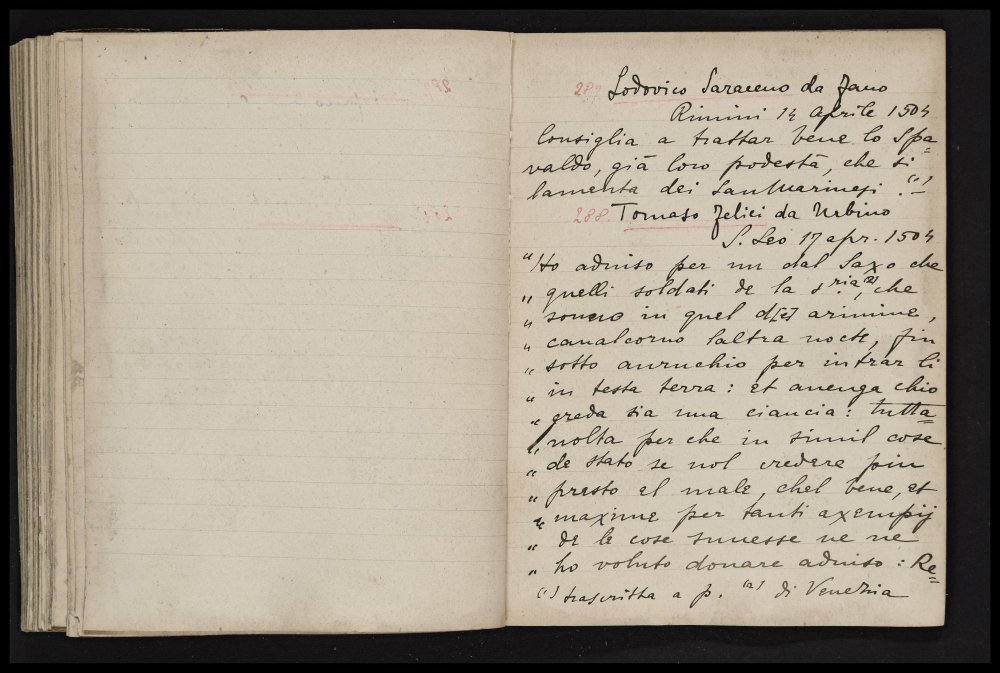 287 Lodovico Saraceno da Fano
Rimini 14 Aprile 1504
Consiglia a trattar bene lo Spa=
valdo, già loro podestà, che si
lamenta dei SanMarinesi. (1)
288. Tomaso Felici da Urbino
S. Leo 17 apr. 1504
"Ho aduiso per un dal Saxo che
" quelli soldati de la s.ria (2), che
" sonno in quel d[e] arimine,
" caualcorno laltra nocte, fin
" sotto auruchio per intrar li
" in testa terra: et auenga chio
" creda sia una ciancia: tutta=
" uolta per che in simil cose
" de stato se uol credere piu
" presto el male, chel bene, et
" maxime per tanti axempij
" de le cose sucesse ue ne
" ho voluto donare aduiso: Re=
(1) trascritta a p. (2) di Venezia